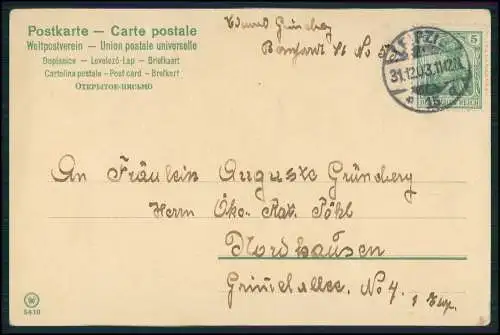 Postkarte — Carte postale
Weltpostverein — Union postale universelle
Dopisnice — Levelező-Lap — Briefkaart
Cartolina postale - Post card - Brefkort
ОТКРЫТОЕ-ПИСЬМО
Grünberg
St No 5
LEIPZIG
31.12.03.11-12
5
An Fräulein Auguste Grünberg
Herrn Öko. Rat. Pöhl
Nordhausen
No 4.
5610